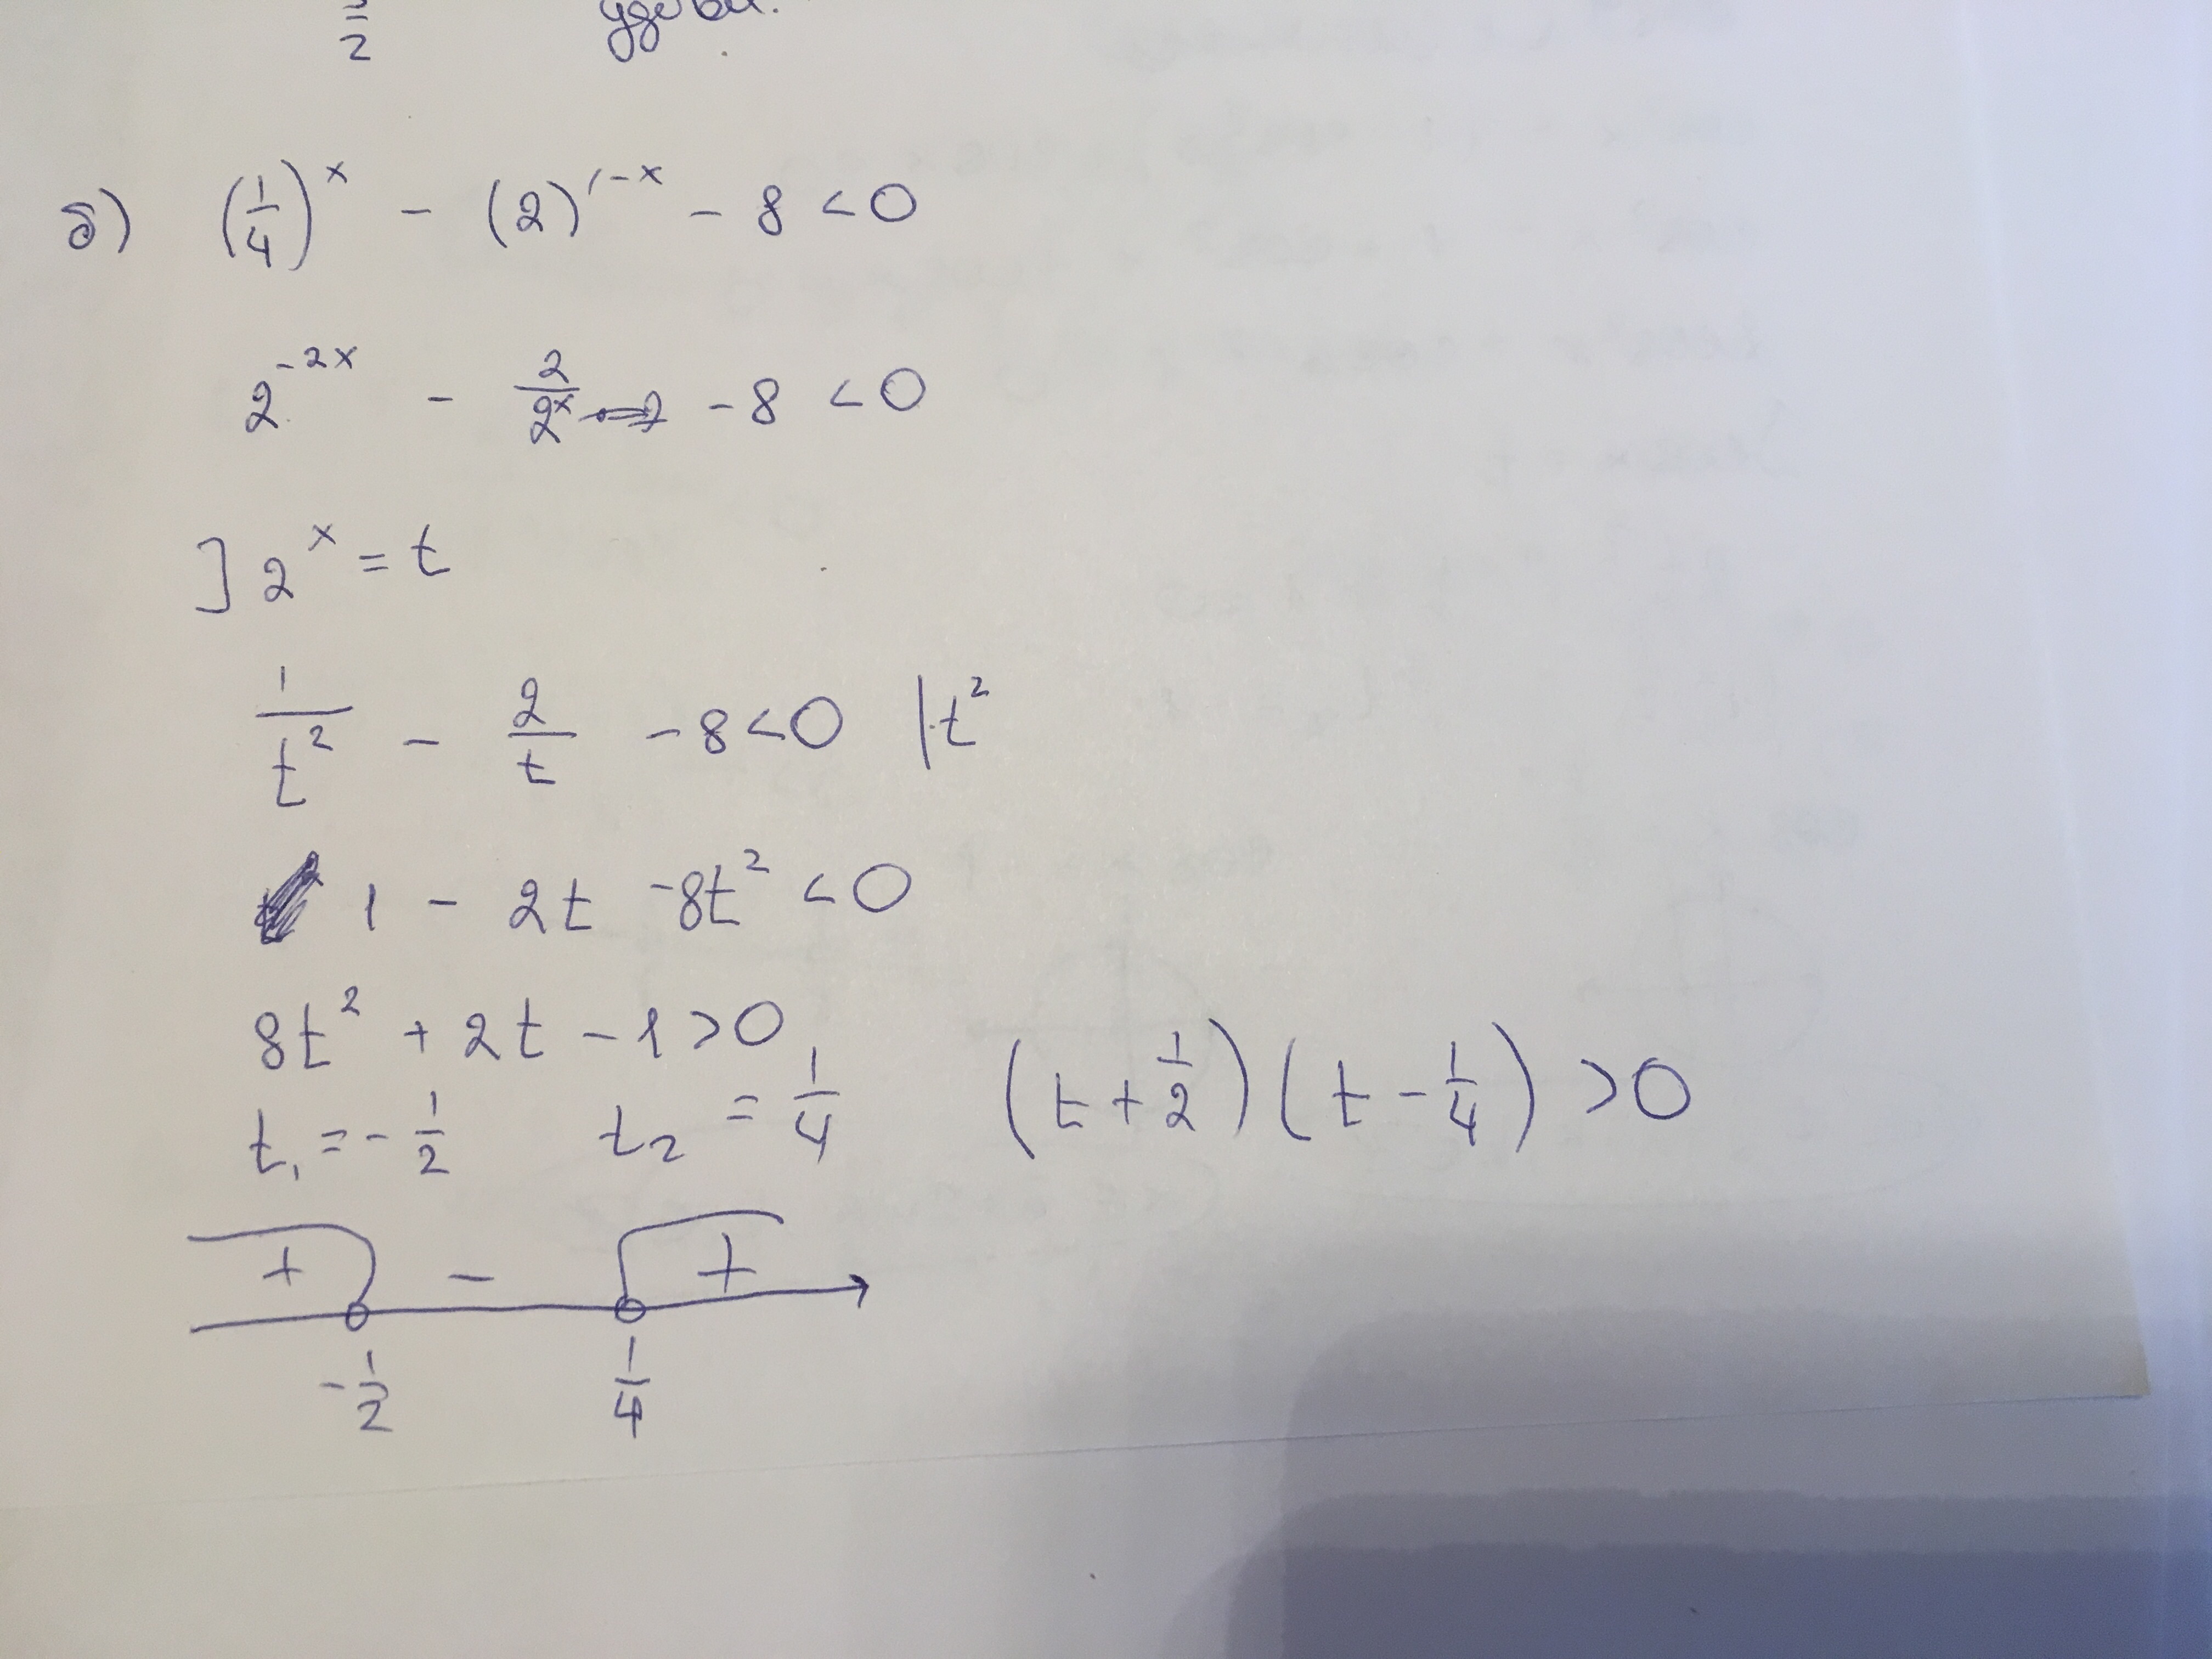 3/2 удовл.
б) (1/4)^x - (2)^(1-x) - 8 < 0
2^(-2x) - 2/2^x - 8 < 0
] 2^x = t
1/t² - 2/t - 8 < 0 |·t²
1 - 2t - 8t² < 0
8t² + 2t - 1 > 0
t₁ = -1/2 t₂ = 1/4 (t + 1/2)(t - 1/4) > 0
+ - +
-1/2 1/4